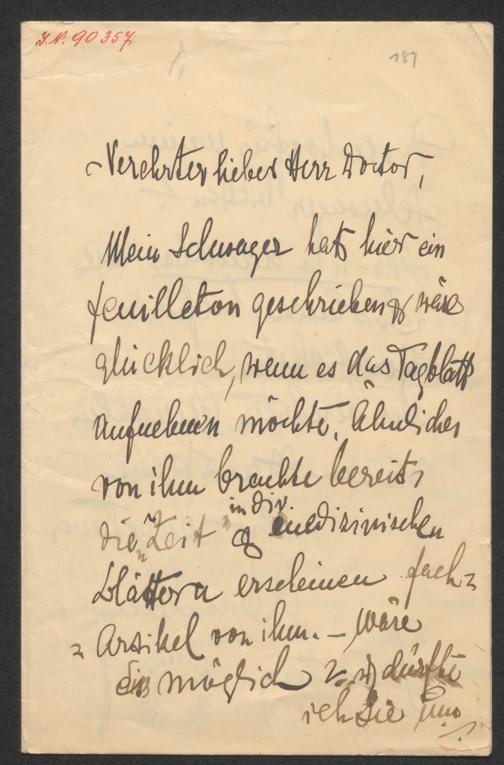 J.N. 90357
189
Verehrter lieber Herr Doctor,
Mein Schwager hat hier ein
feuilleton geschrieben & wäre
glücklich, wenn es das Tagblatt
aufnehmen möchte. Ähnliches
von ihm brachte bereits
die „Zeit" & in div. medizinischen
blättern erscheinen fach=
=Artikel von ihm. – Wäre
dies möglich & dürfte
ich Sie um